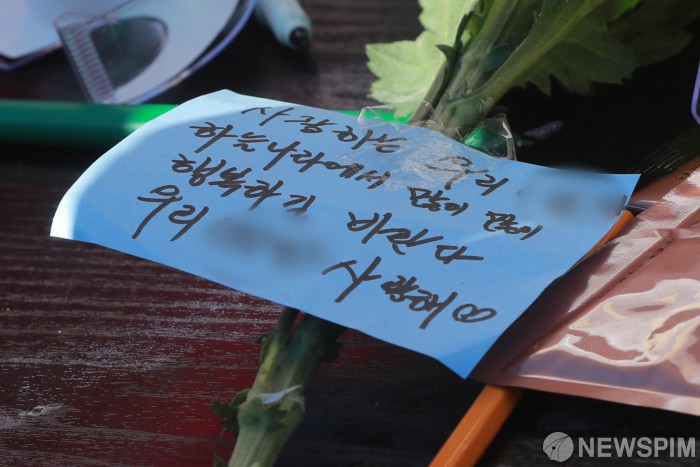 사랑하는 우리
하늘나라에서 많이 많이
행복하기 바란다
우리
사랑해♡
NEWSPIM